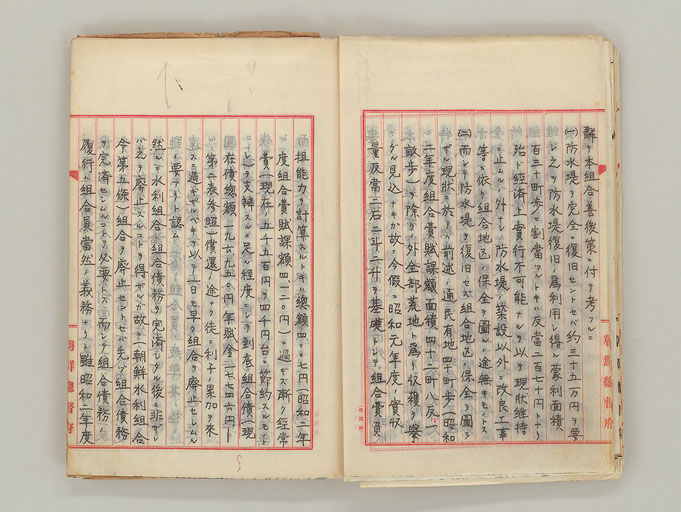 飜テ本組合善後策ニ付考フルニ
(一)防水堤ヲ完全ニ復旧セントセバ約三十五万円ヲ要
シ之ヲ防水堤復旧ノ為利用シ得ル蒙利面積
百三十町歩ニ割当ツルトキハ反当二百七十円トナリ
殆ド経済上実行不可能ナルヲ以テ現状維持
ニ止ムルノ外ナシ防水堤ノ築設以外ノ改良工事
等ニ依リ組合地区ノ保全ヲ図ルノ途無キモノトス
(二)而シテ防水堤ヲ復旧セズ組合地区ノ保全ヲ図ラ
ザル現状ニ於テハ前述ノ通民有地四十町歩(昭和
二年度組合費賦課額面積四十二町八反一
畝歩)ヲ除クノ外全部荒地ト為リ収穫ヲ挙
グル見込ナキガ故ニ今仮ニ昭和元年度ノ実収
量反当二石二斗二升ヲ基礎トシテ組合費負
担能力ヲ計算スルトキハ総額四、〇七円(昭和二年
度組合費賦課額四、一二〇円)ニ過ギズ漸ク経常
費(現在ノ五千五百円ヲ四千円台ニ節約スルモノト
シ)ヲ支弁スルニ足ル程度ニシテ到底組合債(現
在債総額一九六、九五〇円年賦金一七、七四六円
第二表参照)償還ノ途ナク徒ニ利子ノ累加ヲ来
スニ過ギザルベキヲ以テ一日モ早ク組合ヲ廃止セシムル
ノ要アリト認ム
然ルニ水利組合ハ組合債務ヲ完済シタル後ニ非ザレ
バ之ヲ廃止スルコトヲ得ザルガ故ニ(朝鮮水利組合
令第五條)組合ヲ廃止セントセバ先ヅ組合債務
ヲ完済セシムルコトヲ必要トス而シテ組合債務ノ
履行ハ組合員当然ノ義務ナリト雖昭和二年度
朝鮮總督府